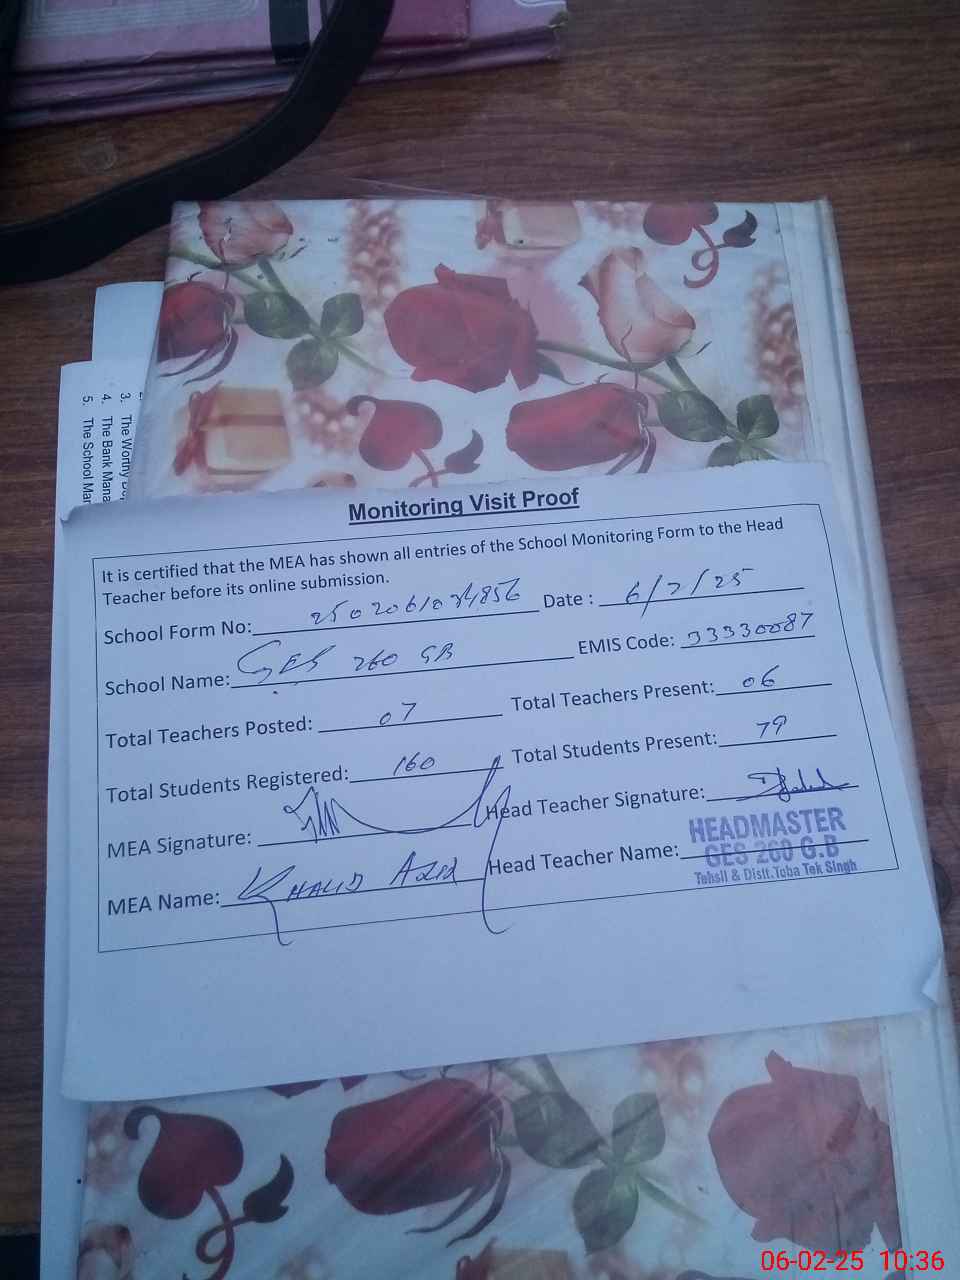 3. The Worthy
4. The Bank Mana
5. The School Mar
Monitoring Visit Proof
It is certified that the MEA has shown all entries of the School Monitoring Form to the Head
Teacher before its online submission.
School Form No: 2502061034856 Date : 6/2/25
School Name: GES 260 GB EMIS Code: 33330087
Total Teachers Posted: 07 Total Teachers Present: 06
Total Students Registered: 160 Total Students Present: 79
MEA Signature: Head Teacher Signature:
MEA Name: KHALID AZIZ Head Teacher Name:
HEADMASTER
GES 260 G.B
Tehsil & Distt.Toba Tek Singh
06-02-25 10:36